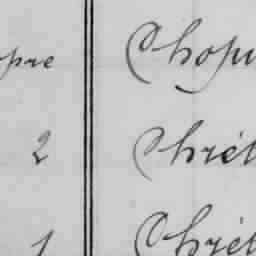 pre Chop
2 Chrét
1 Chrét